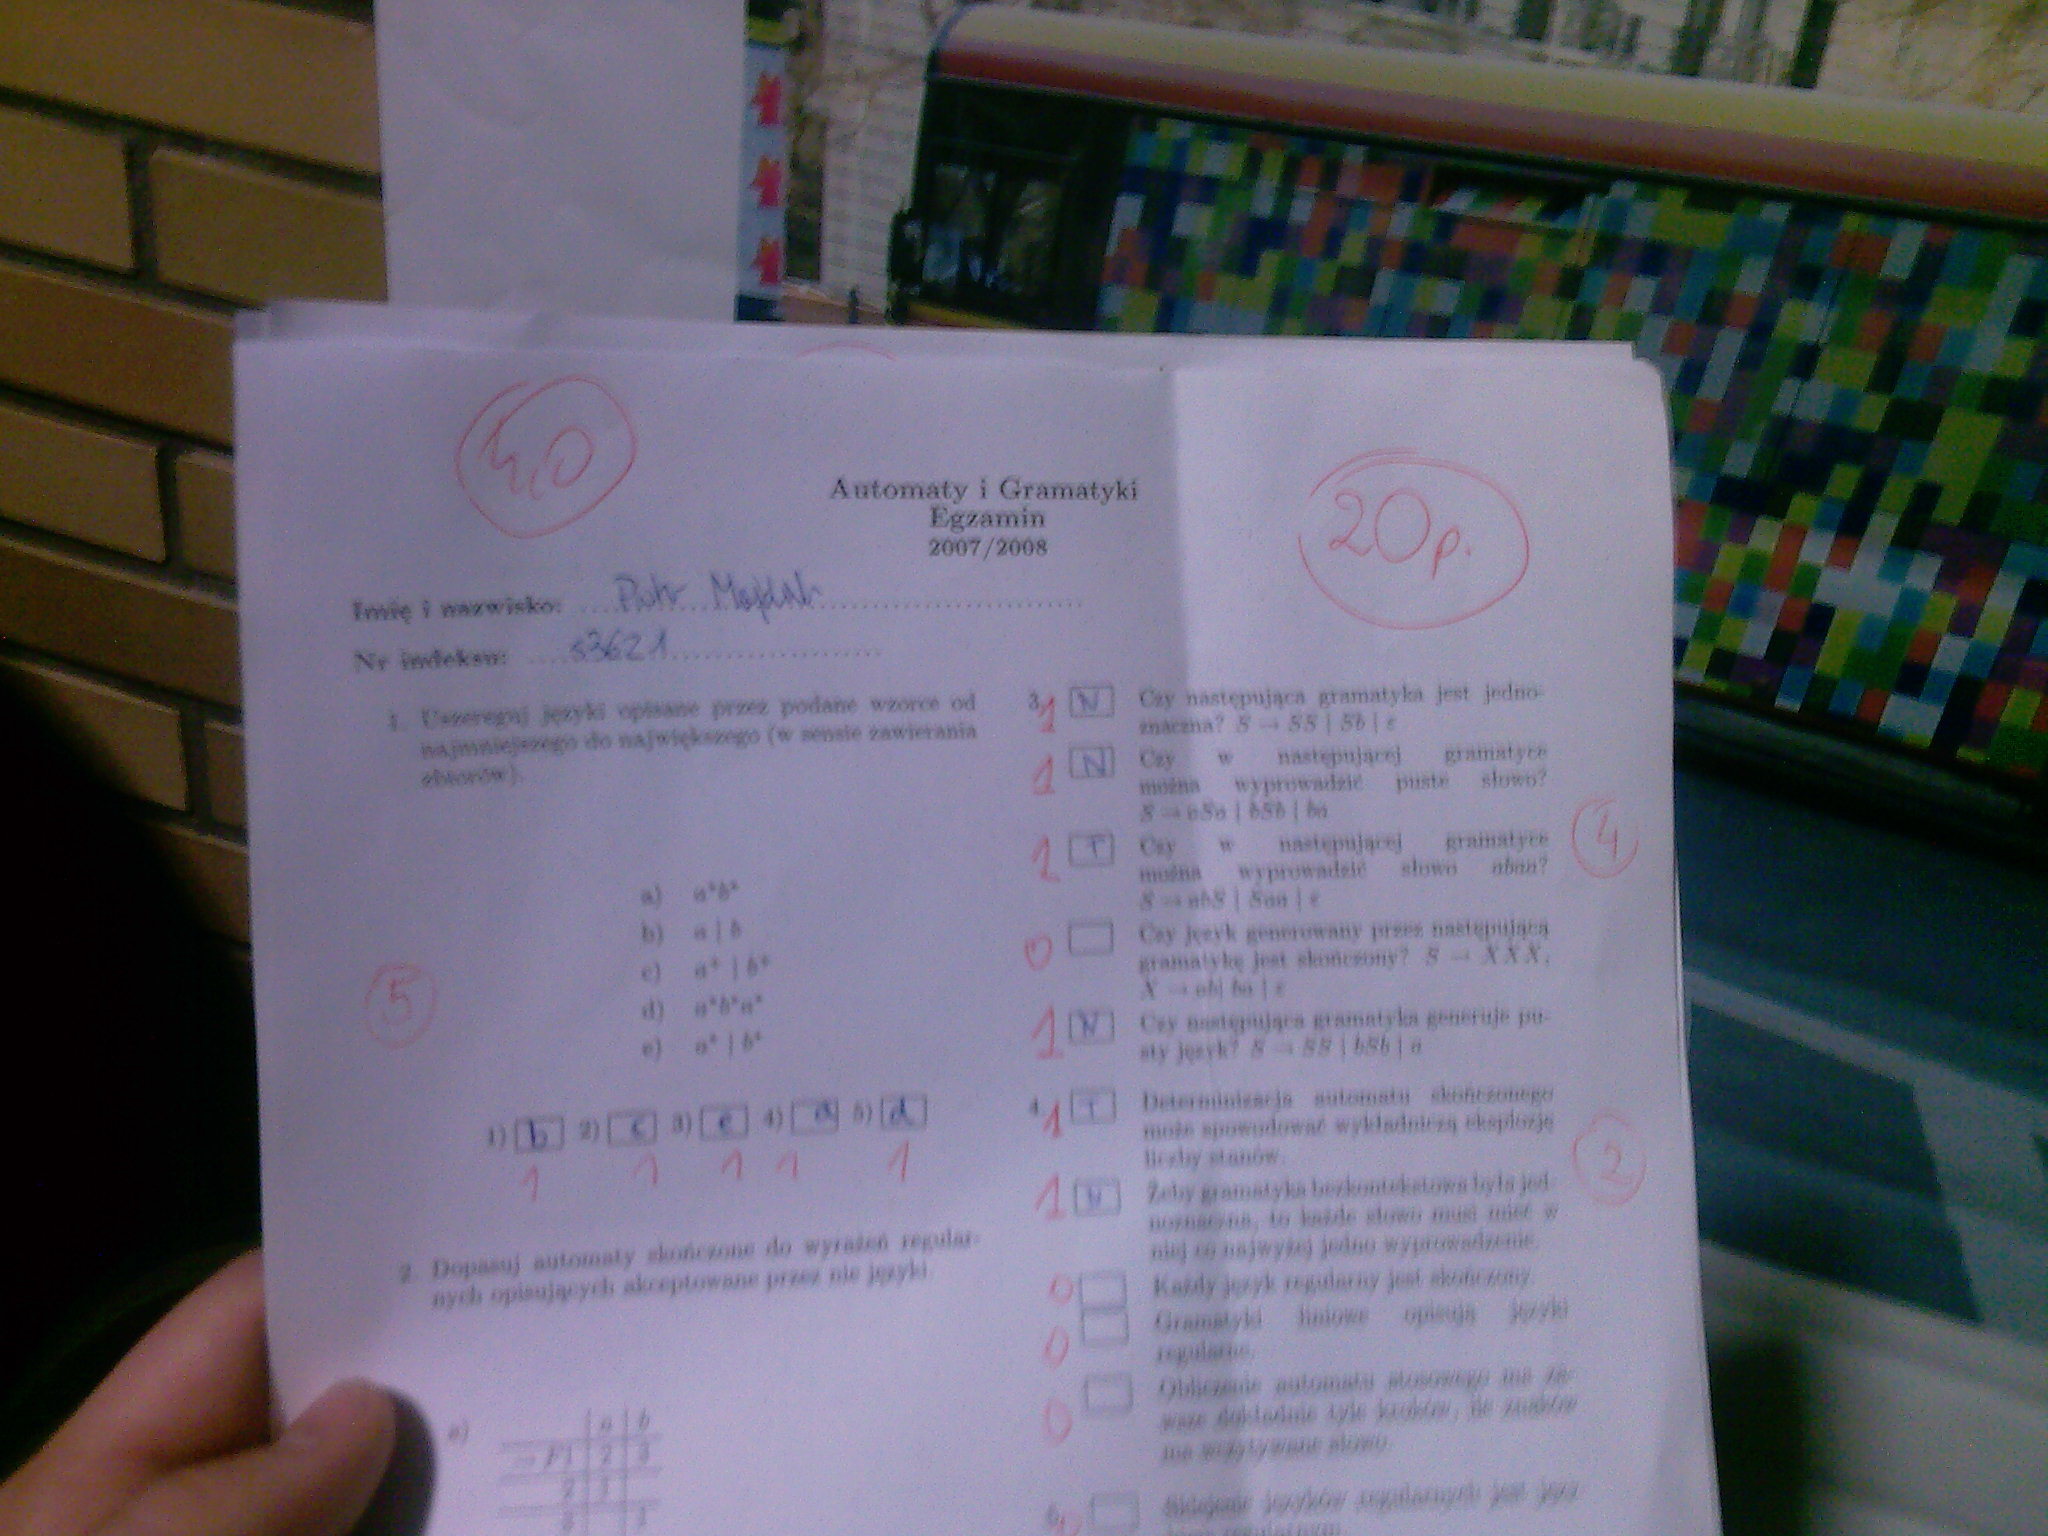 4,0
Automaty i Gramatyki
Egzamin
2007/2008
20p.
Imię i nazwisko:
Nr indeksu: s3621
1. Uszereguj języki opisane przez podane wzorce od
najmniejszego do największego (w sensie zawierania
zbiorów).
a) a*b*
b) a | b
c) a⁺ | b⁺
d) a*b*a*
e) a* | b*
5
1) b 2) c 3) e 4) a 5) d
1 1 1 1 1
2. Dopasuj automaty skończone do wyrażeń regular-
nych opisujących akceptowane przez nie języki.
a)
a b
→F1 2 3
2 1
3 1
3. 1 N Czy następująca gramatyka jest jedno-
znaczna? S → SS | Sb | ε
1 N Czy w następującej gramatyce
można wyprowadzić puste słowo?
S → aSa | bSb | ba
1 T Czy w następującej gramatyce
można wyprowadzić słowo abaa?
S → abS | Saa | ε
4
0 Czy język generowany przez następującą
gramatykę jest skończony? S → XXX,
X → ab| ba | ε
1 N Czy następująca gramatyka generuje pu-
sty język? S → SS | bSb | a
4. 1 T Determinizacja automatu skończonego
może spowodować wykładniczą eksplozję
liczby stanów.
1 N Żeby gramatyka bezkontekstowa była jed-
noznaczna, to każde słowo musi mieć w
niej co najwyżej jedno wyprowadzenie.
2
0 Każdy język regularny jest skończony.
0 Gramatyki liniowe opisują języki
regularne.
0 Obliczenie automatu stosowego ma za-
wsze dokładnie tyle kroków, ile znaków
ma wczytywane słowo.
5. 0 Sklejenie języków regularnych jest języ-